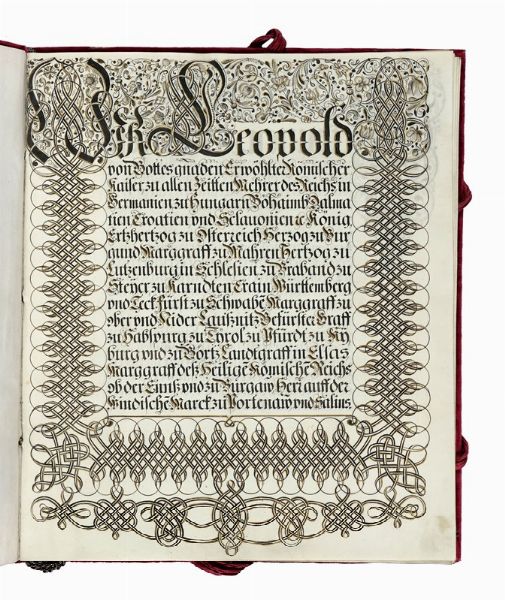 Wir Leopold
von Gottes gnaden Erwöhlte Römischer
Kaiser zu allen Zeitten Mehrer des Reichs in
Germanien zu Hungarn Böheimb Dalma
tien Croatien vnd Sclauonien &c König
Ertzhertzog zu Österreich Hertzog zu Bur
gund Marggraff zu Mähren Hertzog zu
Lutzenburg in Schlesien zu Braband zu
Steyer zu Karndten Crain Württemberg
vnd Teck Fürst zu Schwabē Marggraff zu
ober vnd Nider Laußnitz Gefürste Graff
zu Habspurg zu Tyrol zu Pfürdt zu Ky
burg vnd zu Görtz Landtgraff in Elsas
Marggraff deß Heilige Römische Reichs
ob der Ennß vnd zu Burgaw Herr auf der
Windische Marck zu Portenaw vnd Salins